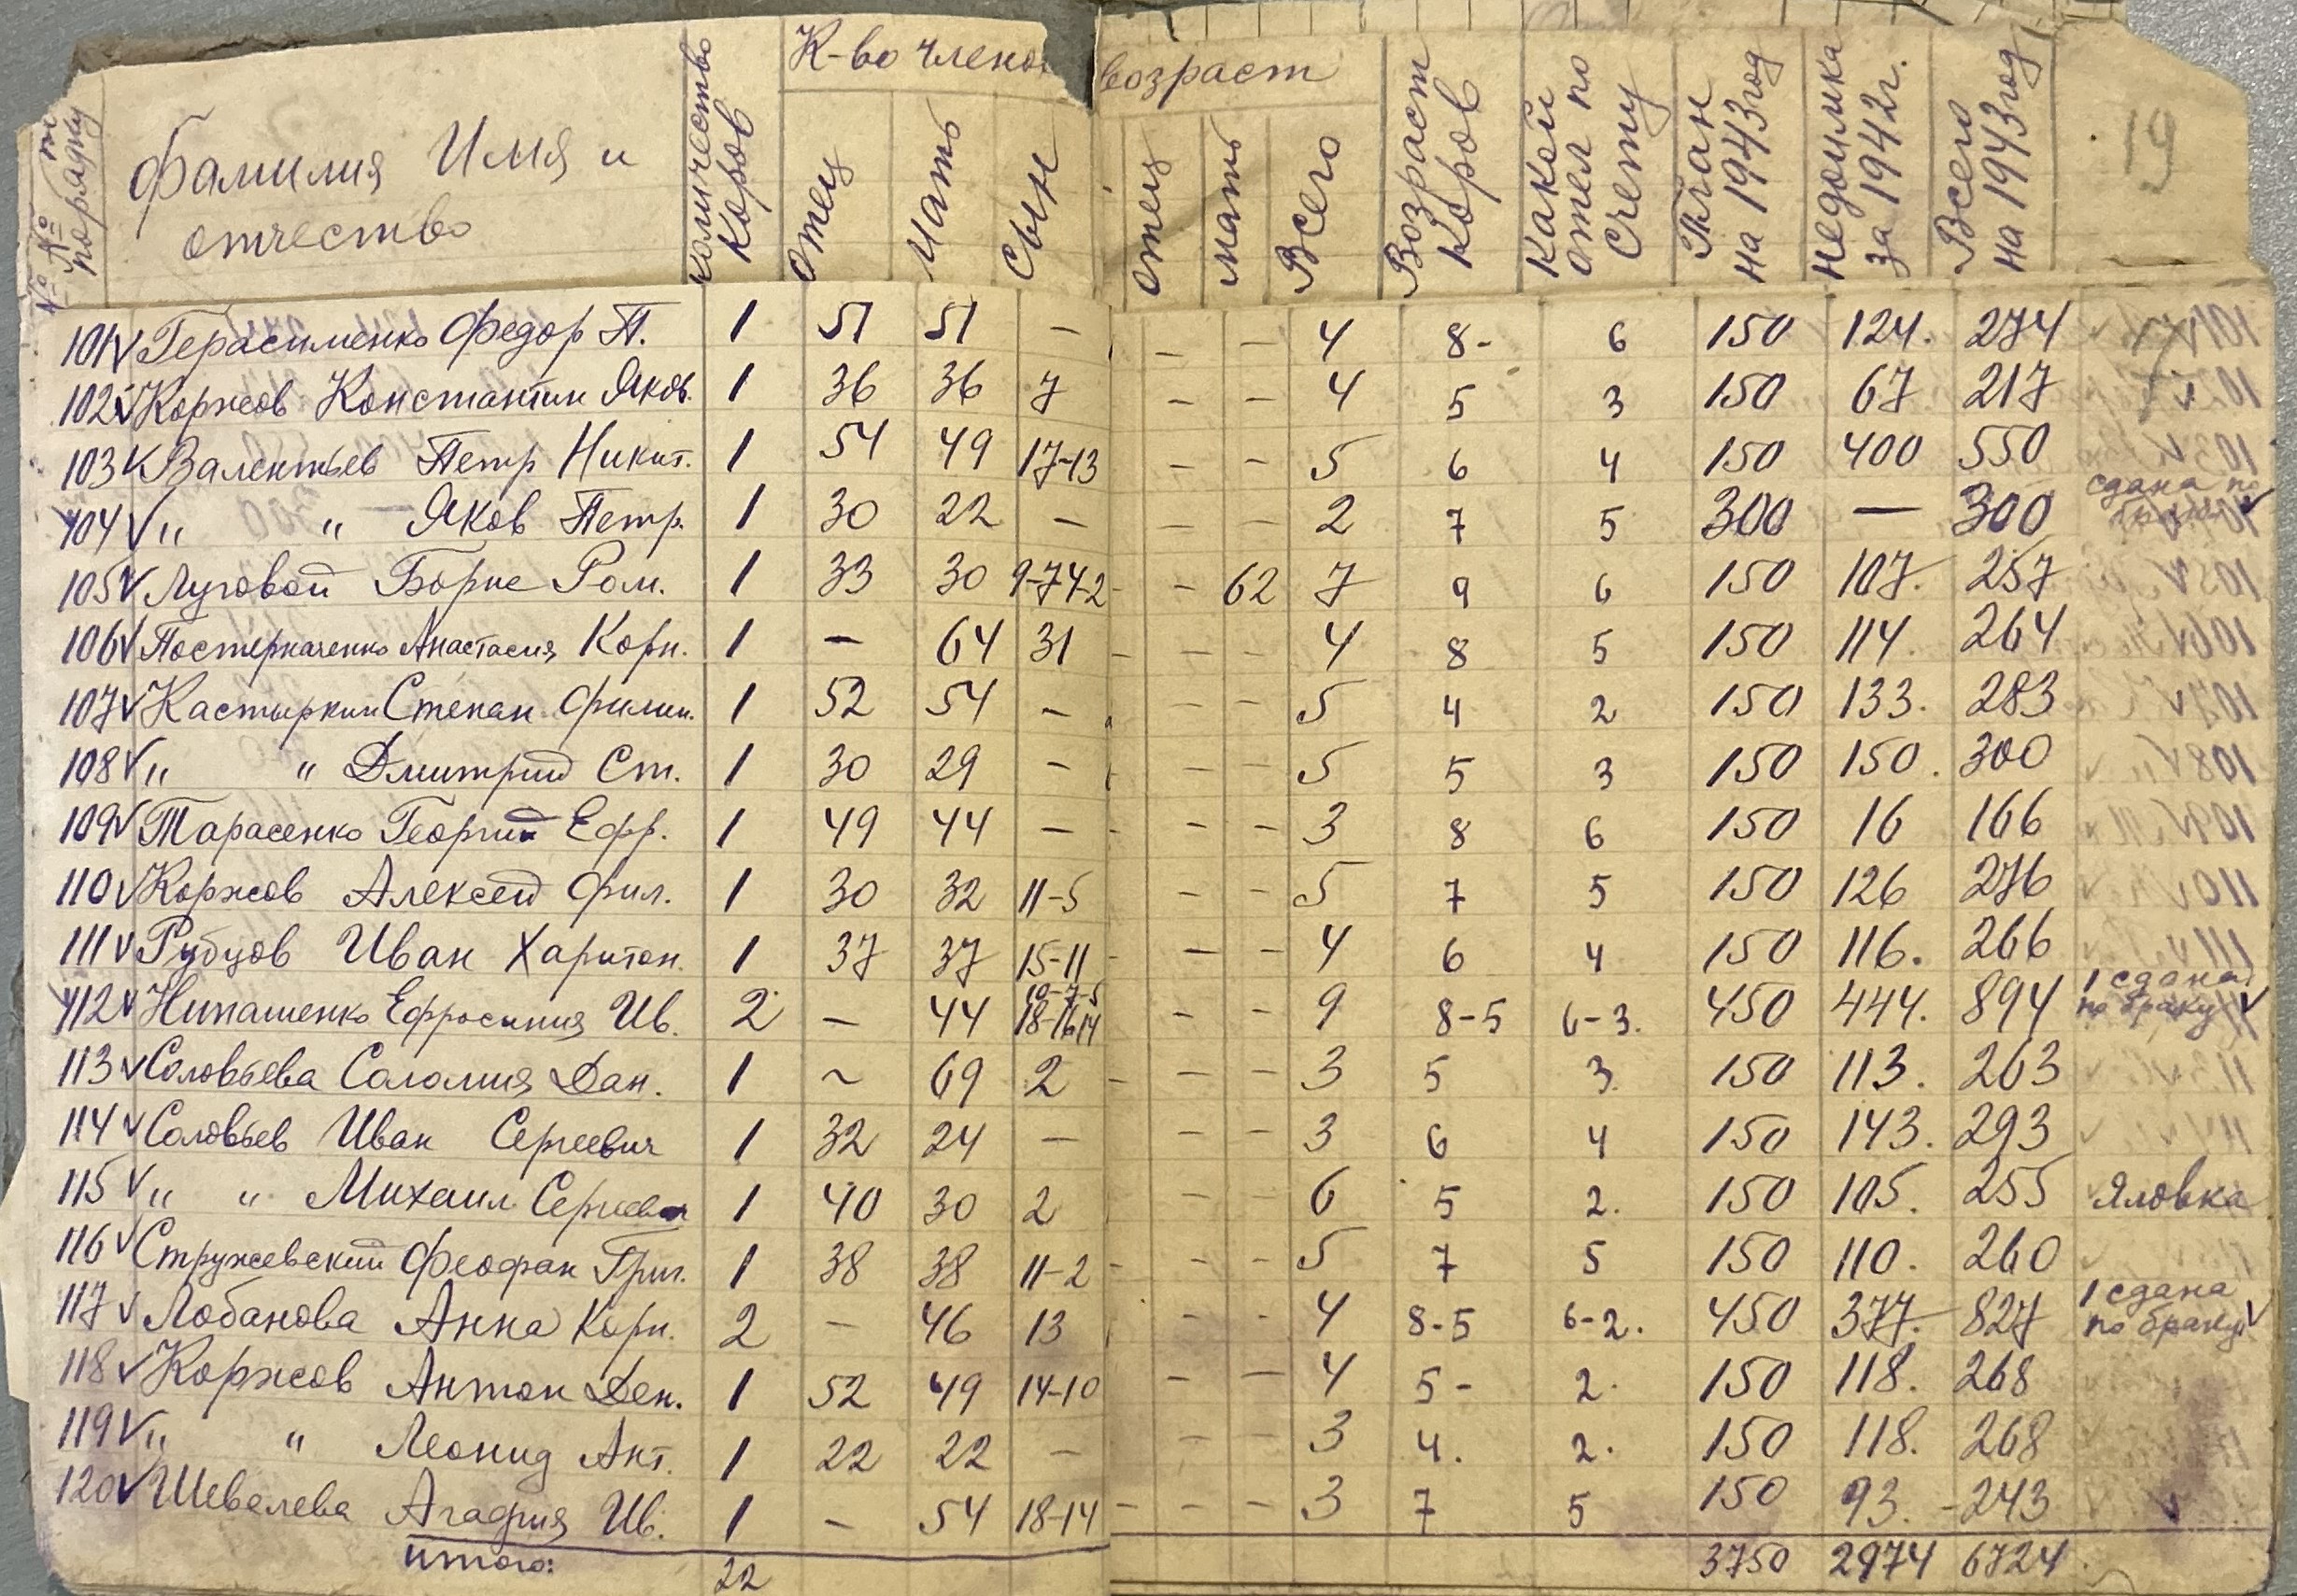 № № п порядку | Фамилия Имя и отчество | количество Коров | К-во члено | возраст | Возраст Коров | Какой отел по Счету | План на 1943 год | недоимка за 1942 г. | Всего на 1943 год | 19
отец | мать | сын | отец | мать | Всего
101 V Герасименко Федор П. 1 51 51 – – – 4 8- 6 150 124. 274
102 V Коржов Константин Яков. 1 36 36 7 – – 4 5 3 150 67 217
103 V Валентьев Петр Никит. 1 54 49 17-13 – – 5 6 4 150 400 550
104 V " " Яков Петр. 1 30 22 – – – 2 7 5 300 — 300 сдана по V
105 V Луговой Борис Ром. 1 33 30 9-7-4-2 – – 62 7 9 6 150 107. 257
106 V Анастасия Корн. 1 – 64 31 – – – 4 8 5 150 114. 264
107 V Кастыркин Степан Филип. 1 52 54 – – – 5 4 2 150 133. 283
108 V " " Дмитрий Ст. 1 30 29 – – – 5 5 3 150 150. 300
109 V Тарасенко Георгий Ефр. 1 49 44 – – – – 3 8 6 150 16 166
110 V Коржов Алексей Фил. 1 30 32 11-5 – – 5 7 5 150 126 276
111 V Рубцов Иван Харитон. 1 37 37 15-11 – – – 4 6 4 150 116. 266
112 V Нипашенко Ефросиния Ив. 2 – 44 10-7-5 18-16-14 – – 9 8-5 6-3. 450 444. 894 1 сдана по браку V
113 V Соловьева Саломия Дан. 1 ~ 69 2 – – – 3 5 3. 150 113. 263
114 V Соловьев Иван Сергеевич 1 32 24 – – – 3 6 4 150 143. 293
115 V " " Михаил Сергеевич 1 40 30 2 – – 6 5 2. 150 105. 255 Яловка
116 V Стружевский Феофан Григ. 1 38 38 11-2 – – – 5 7 5 150 110. 260
117 V Лобанова Анна Корн. 2 – 46 13 – – 4 8-5 6-2. 450 377. 827 1 сдана по браку V
118 V Коржов Антон Ден. 1 52 49 14-10 – – 4 5- 2. 150 118. 268
119 V " " Леонид Ант. 1 22 22 – – – 3 4. 2. 150 118. 268
120 V Шевелева Агафия Ив. 1 – 54 18-14 – – – 3 7 5 150 93. -243 V
Итого: 22 3750 2974 6724